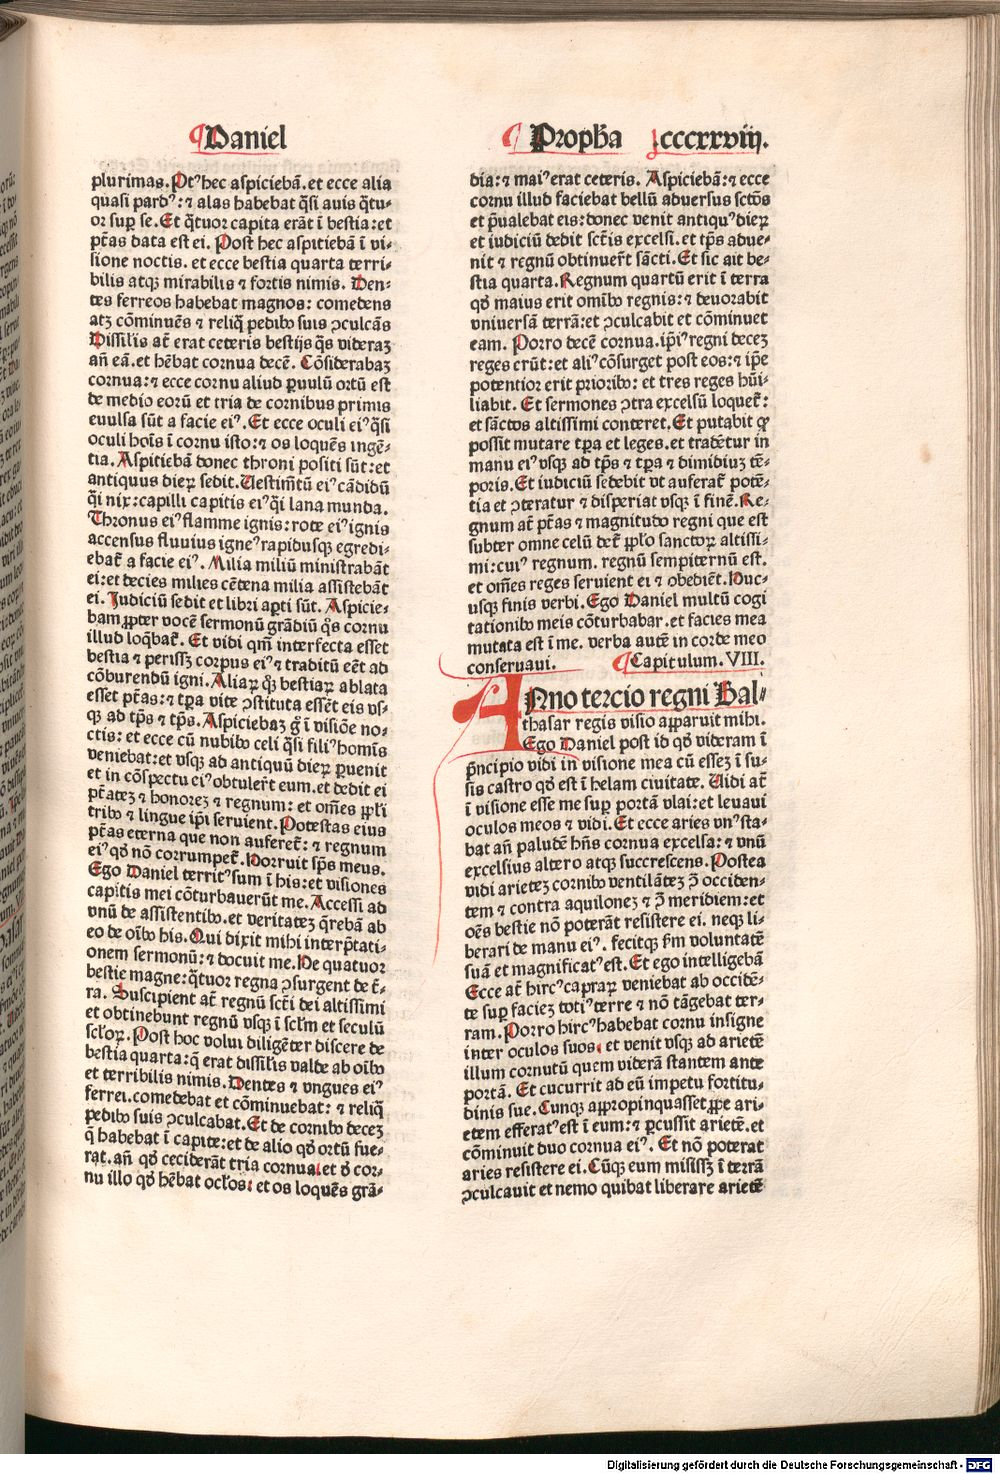 Daniel
Propha cccxxviij.
plurimas. Ptꝰ hec aspiciebã. et ecce alia
quasi pardꝰ: ⁊ alas habebat q̃si auis q̃tu⸗
or sup se. Et q̃tuor capita erãt ĩ bestia: et
ptãs data est ei. Post hec aspitiebã ĩ vi⸗
sione noctis. et ecce bestia quarta terri⸗
bilis atqꝫ mirabilis ⁊ fortis nimis. Den⸗
tes ferreos habebat magnos: comedens
atꝫ cõminuẽs ⁊ reliq̃ pedibꝰ suis ꝯculcãs
Dissilis at̃ erat ceteris bestijs q̃s videraꝫ
añ eã. et hẽbat cornua decẽ. Cõsiderabaꝫ
cornua: ⁊ ecce cornu aliud ꝑuulũ ortũ est
de medio eorũ et tria de cornibus primis
euulsa sũt a facie eiꝰ. Et ecce oculi eiꝰ q̃si
oculi hoĩs ĩ cornu isto: ⁊ os loquẽs ingẽ⸗
tia. Aspitiebã donec throni positi sũt: et
antiquus dieꝝ sedit. Uestim̃tũ eiꝰ cãdidũ
q̃i nix: capilli capitis eiꝰ q̃i lana munda.
Thronus eiꝰ flamme ignis: rote eiꝰ ignis
accensus fluuius igneꝰ rapidusqꝫ egredi⸗
ebat̃ a facie eiꝰ. Milia miliũ ministrabãt
ei: et decies milies cẽtena milia assistebãt
ei. Judiciũ sedit et libri aꝑti sũt. Aspicie⸗
bam ꝓpter vocẽ sermonũ grãdiũ q̃s cornu
illud loq̃bat̃. Et vidi qm̃ interfecta esset
bestia ⁊ perissꝫ corpus eiꝰ ⁊ traditũ eẽt ad
cõburendũ igni. Aliaꝝ q̃ꝫ bestiaꝝ ablata
esset ptãs: ⁊ tꝑa vite ꝯstituta essẽt eis vs⸗
qꝫ ad tp̃s ⁊ tp̃s. Aspiciebaꝫ g̃ ĩ visiõe no⸗
ctis: et ecce cũ nubibꝰ celi q̃si filiꝰ homĩs
veniebat: et vsqꝫ ad antiquũ dieꝝ ꝑuenit
et in cõspectu eiꝰ obtuleñt eum. et dedit ei
ptãteꝫ ⁊ honoreꝫ ⁊ regnum: et om̃es pp̃li
tribꝰ ⁊ lingue ip̃i seruient. Potestas eius
ptãs eterna que non auferet̃: ⁊ regnum
eiꝰ qd̃ nõ corrumpet̃. Horruit sp̃s meus.
Ego Daniel territꝰ sum ĩ his: et visiones
capitis mei cõturbauerũt me. Accessi ad
vnũ de assistentibꝰ. et veritateꝫ q̃rebã ab
eo de oĩbꝰ his. Qui dixit mihi interp̃tati⸗
onem sermonũ: ⁊ docuit me. He quatuor
bestie magne: q̃tuor regna ꝯsurgent de t̃⸗
ra. Suscipient at̃ regnũ scti dei altissimi
et obtinebunt regnũ vsqꝫ ĩ scl̃m et seculũ
scl̃oꝝ. Post hoc volui diligẽter discere de
bestia quarta: q̃ erat dissilis valde ab oĩbꝰ
et terribilis nimis. Dentes ⁊ vngues eiꝰ
ferrei. comedebat et cõminuebat: ⁊ reliq̃
pedibꝰ suis ꝯculcabat. Et de cornibꝰ deceꝫ
q̃ habebat ĩ capite: et de alio qd̃ ortũ fue⸗
rat. añ qd̃ ceciderãt tria cornua. et d̃ cor⸗
nu illo qd̃ hẽbat ocl̃os: et os loquẽs grã⸗
dia: ⁊ maiꝰ erat ceteris. Aspiciebã: ⁊ ecce
cornu illud faciebat bellũ aduersus sctõs
et p̃ualebat eis: donec venit antiquꝰ dieꝝ
et iudiciũ dedit sctĩs excelsi. et tp̃s adue⸗
nit ⁊ regnũ obtinuer̃t sãcti. Et sic ait be⸗
stia quarta. Regnum quartũ erit ĩ terra
qd̃ maius erit omĩbꝰ regnis: ⁊ deuorabit
vniuersã terrã: et ꝯculcabit et cõminuet
eam. Porro decẽ cornua. ip̃iꝰ regni deceꝫ
reges erũt: et aliꝰ cõsurget post eos: ⁊ ip̃e
potentior erit prioribꝰ: et tres reges hũi⸗
liabit. Et sermones ꝯtra excelsũ loquet̃:
et sãctos altissimi conteret. Et putabit ꝙ
possit mutare tꝑa et leges. et tradẽtur in
manu eiꝰ vsqꝫ ad tp̃s ⁊ tꝑa ⁊ dimidiuꝫ tẽ⸗
poris. Et iudiciũ sedebit vt auferat̃ potẽ⸗
tia et ꝯteratur ⁊ disperiat vsqꝫ ĩ finẽ. Re⸗
gnum at̃ ptãs ⁊ magnitudo regni que est
subter omne celũ det̃ pp̃lo sanctoꝝ altissi⸗
mi: cuiꝰ regnum. regnũ sempiternũ est.
et om̃es reges seruient ei ⁊ obediẽt. Huc⸗
usqꝫ finis verbi. Ego Daniel multũ cogi
tationibꝰ meis cõturbabar. et facies mea
mutata est ĩ me. verba autẽ in corde meo
conseruaui. Capitulum. VIII.
ANno tercio regni Bal⸗
thasar regis visio apparuit mihi.
Ego Daniel post id qd̃ videram ĩ
p̃ncipio vidi in visione mea cũ esseꝫ ĩ su⸗
sis castro qd̃ est ĩ helam ciuitate. Uidi at̃
ĩ visione esse me sup portã vlai: et leuaui
oculos meos ⁊ vidi. Et ecce aries vnꝰ sta⸗
bat añ paludẽ hñs cornua excelsa: ⁊ vnũ
excelsius altero atqꝫ succrescens. Postea
vidi arieteꝫ cornibꝰ ventilãteꝫ ꝯ̃ occiden⸗
tem ⁊ contra aquiloneꝫ ⁊ ꝯ̃ meridiem: et
oẽs bestie nõ poterãt resistere ei. neqꝫ li⸗
berari de manu eiꝰ. fecitqꝫ sm̃ voluntatẽ
suã et magnificatꝰ est. Et ego intelligebã
Ecce at̃ hircꝰ capraꝝ veniebat ab occidẽ⸗
te sup facieꝫ totiꝰ terre ⁊ nõ tãgebat ter⸗
ram. Porro hircꝰ habebat cornu insigne
inter oculos suos. et venit vsqꝫ ad arietẽ
illum cornutũ quem viderã stantem ante
portã. Et cucurrit ad eũ impetu fortitu⸗
dinis sue. Cunqꝫ appropinquasset ꝓpe ari⸗
etem efferatꝰ est ĩ eum: ⁊ ꝑcussit arietẽ. et
cõminuit duo cornua eiꝰ. Et nõ poterat
aries resistere ei. Cũqꝫ eum misissꝫ ĩ terrã
ꝯculcauit et nemo quibat liberare arietẽ
Digitalisierung gefördert durch die Deutsche Forschungsgemeinschaft - DFG